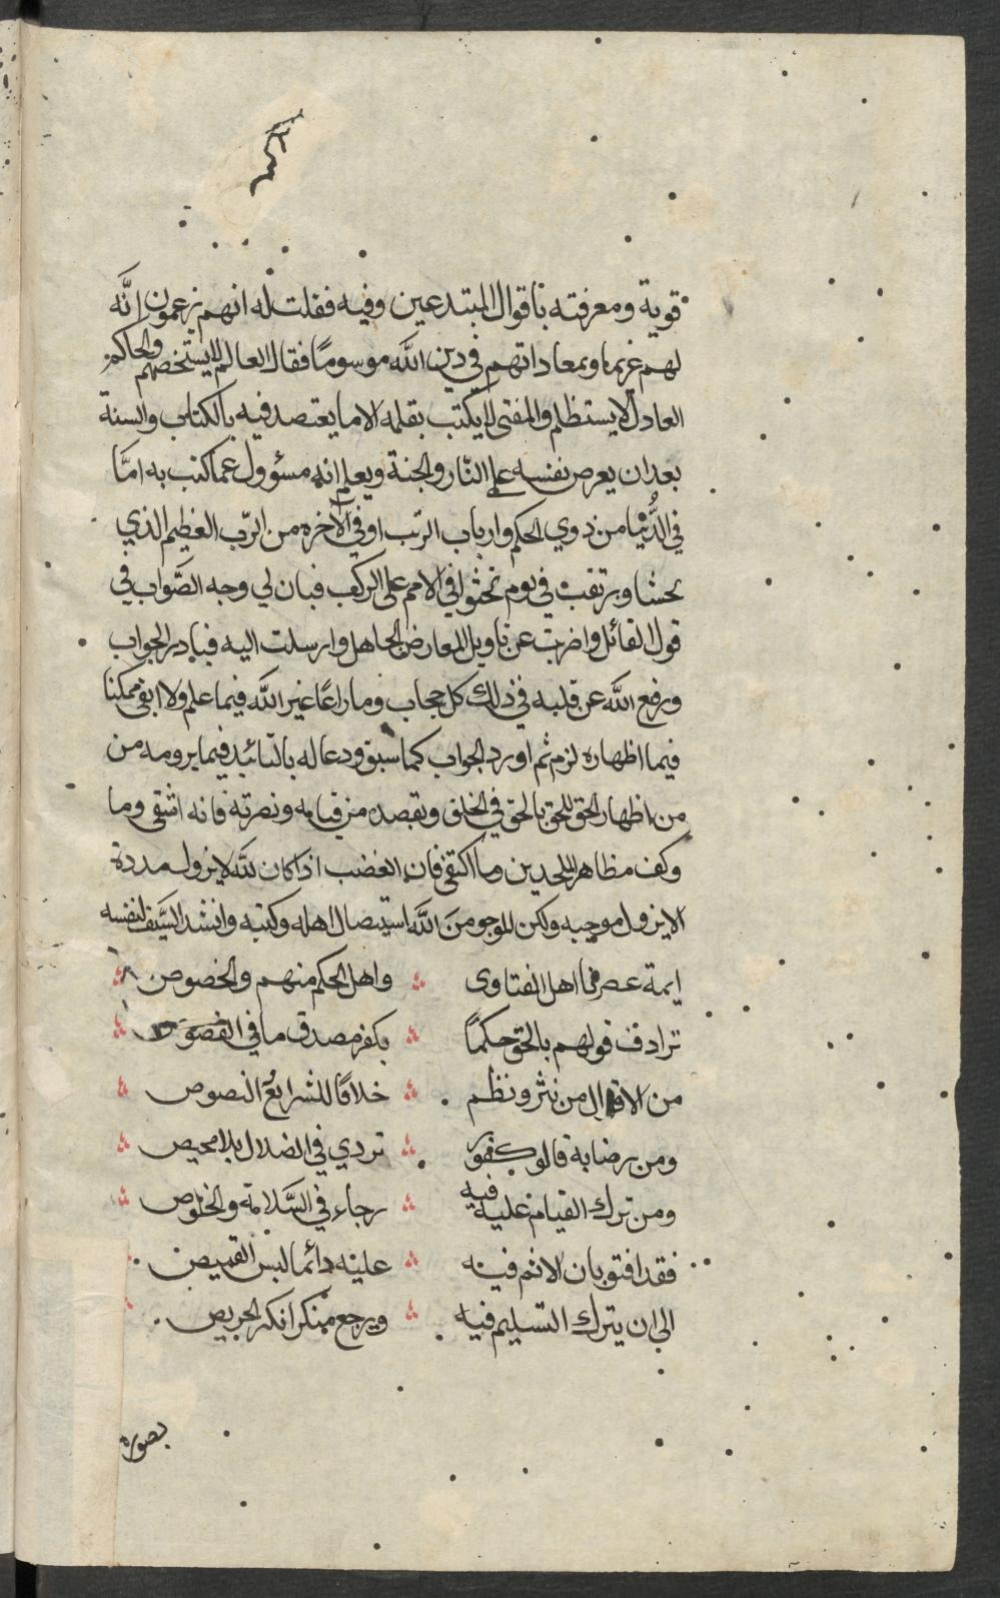 قوية ومعرفته باقوال المبتدعين وفيه فقلت له انهم يزعمون انَّه
لهم غريما وبمعاداتهم في دين الله موسومًا فقال العالم لا يستخصم والحاكم
العادل لا يستظلم والمفتي لا يكتب بقلمه الا ما يعتصد فيه بالكتاب والسنة
بعد ان يعرض نفسه على النّار والجنة ويعلم انه مسؤول عما كتب به امَّا
في الدُّنيا من ذوي الحكم وارباب الرتب او في الآخره من الرّب العظيم الذي
يحشا ويرتقب في يوم تجثوا فيه الامم على الركب فبان لي وجه الصَّواب في
قول القائل واضربت عن تاويل المعارض الجاهل وارسلت اليه فبادر الجواب
ورفع الله عن قلبه في ذلك كل حجاب وما راعًا غير الله فيما علم ولا ابقى ممكنا
فيما اظهاره لزم ثم اورد الجواب كما سبق ودعا له بالتائيد فيما يرومه من
من اظهار الحق للحق بالحق في الخلق ويقصده من قيامه ونصرته فانه اشقى وما
وكف مظاهر الملحدين وما اكتفى فان الغضب اذا كان لله لا يزول مددة
الا بزول موجبه ولكن المرجو منَ الله استيصال اهله وكتبه وانشد السَّيف لنفسه
ايمة عصرنا اهل الفتاوى واهل الحكم منهم والخصوص
ترادف قولهم بالحق حكمًا بكفر مصدق ما في الفصوص
من الاقوال من نثر ونظم خلافًا للشرايع النصوص
ومن يرضا به قالوا كفور تردي في الضلال بلا محيص
ومن ترك القيام عليه فيه رجاء في السَّلامة والخلوص
فقد افتو بان الاثم فيه عليه دائما لبس القميص
الى ان يترك التسليم فيه ويرجع منكرا نكر الحريص
بصوره